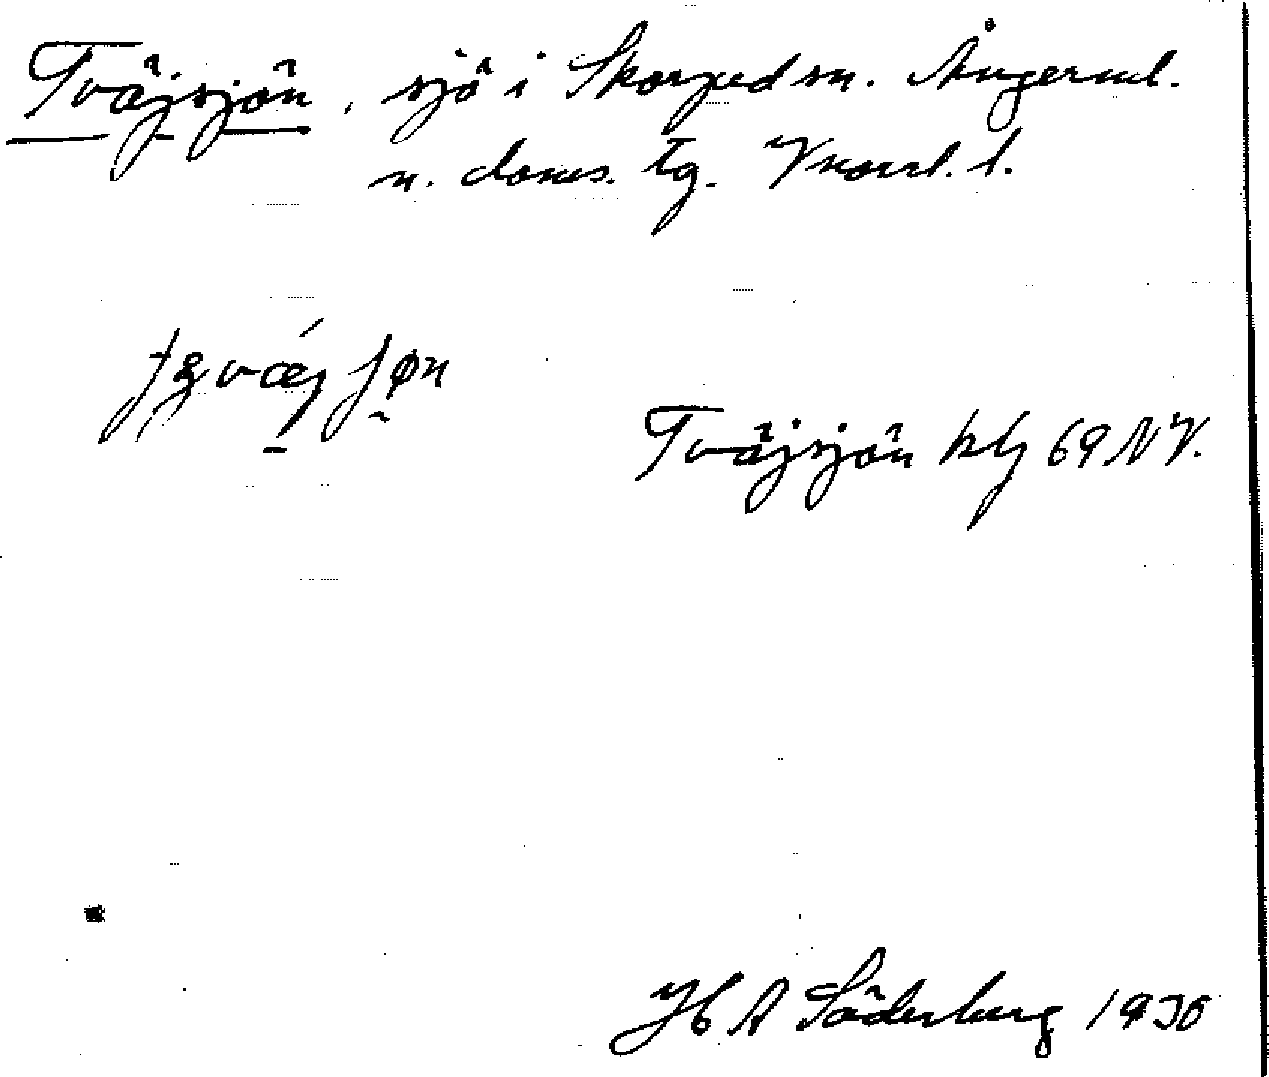 Tväjsjön, sjö i Skorped sn. Ångerml.
n. doms. tg. Vnorrl. l.
Tväjsjön kbl 69 NV.
H A Söderberg 1930